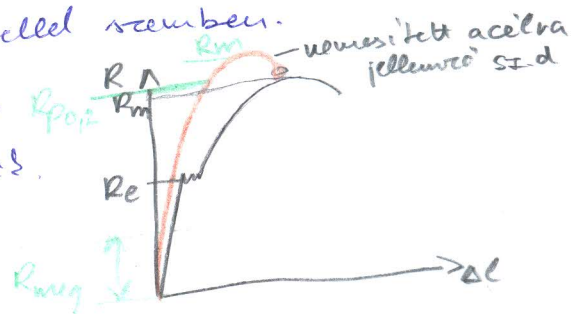 elled szemben.
Rm
nemesített acélra
jellemző sz.d
R
Rp0,2
Rm
Re
Rmeg
Δl